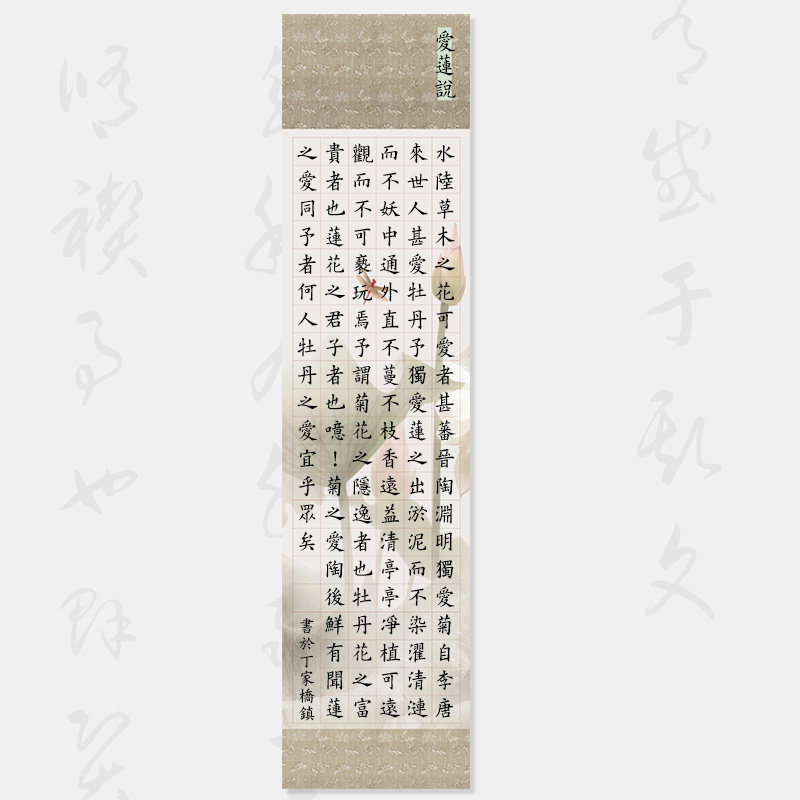 愛蓮說
水陸草木之花可愛者甚蕃晉陶淵明獨愛菊自李唐
來世人甚愛牡丹予獨愛蓮之出淤泥而不染濯清漣
而不妖中通外直不蔓不枝香遠益清亭亭凈植可遠
觀而不可褻玩焉予謂菊花之隱逸者也牡丹花之富
貴者也蓮花之君子者也噫！菊之愛陶後鮮有聞蓮
之愛同予者何人牡丹之愛宜乎眾矣
書於丁家橋鎮
感于斯文
修禊事也群